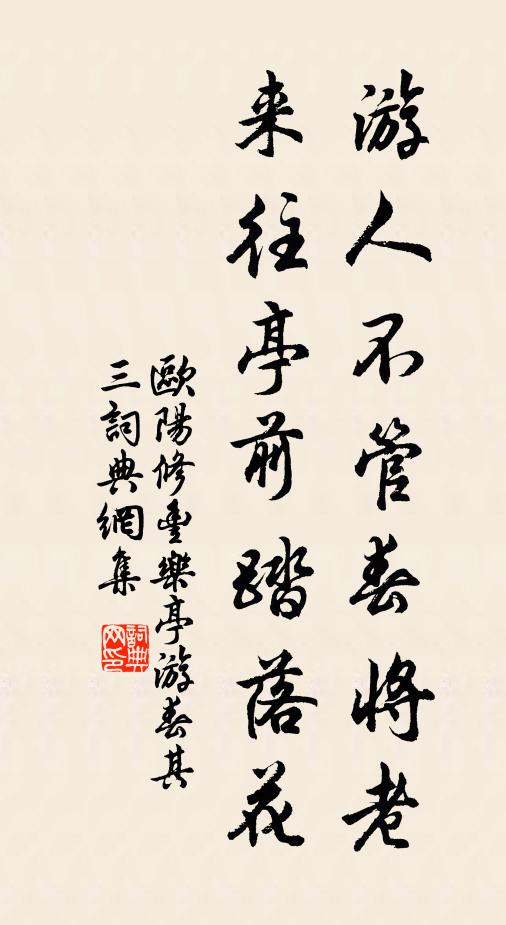 游人不管春将老
来往亭前踏落花
歐陽修豐樂亭游春其
三詞典網集
詞典
网印